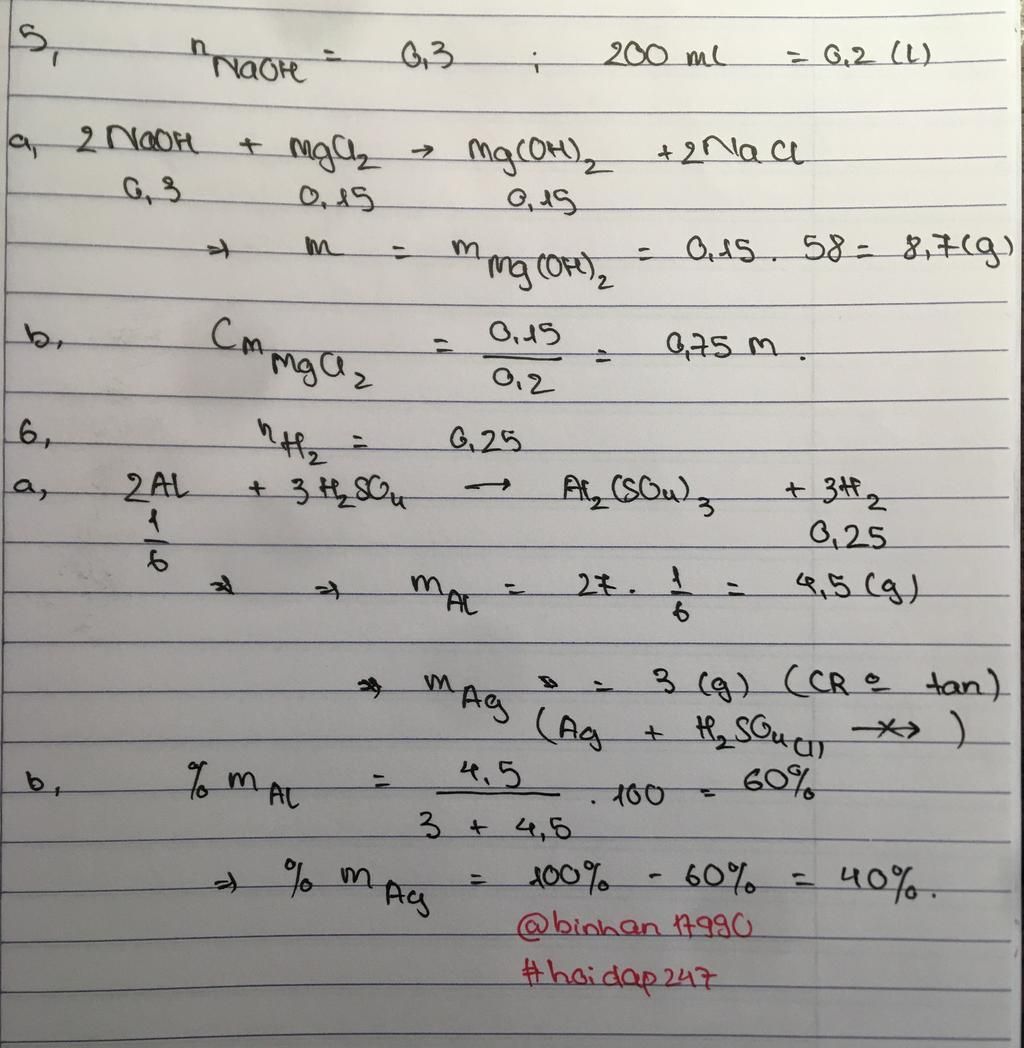 5, nNaOH = 0,3 ; 200 ml = 0,2 (L)
a, 2NaOH + MgCl2 → Mg(OH)2 + 2NaCl
0,3 0,15 0,15
⇒ m = mMg(OH)2 = 0,15 . 58 = 8,7(g)
b, CM MgCl2 = 0,15 / 0,2 = 0,75 M .
6, nH2 = 0,25
a, 2Al + 3H2SO4 → Al2(SO4)3 + 3H2
1/6 0,25
⇒ ⇒ mAl = 27 . 1/6 = 4,5 (g)
⇒ mAg = 3 (g) (CR o tan)
(Ag + H2SO4(l) -×→ )
b, % mAl = 4,5 / 3 + 4,5 . 100 = 60%
⇒ % mAg = 100% - 60% = 40%.
@binhan17990
#hoidap247